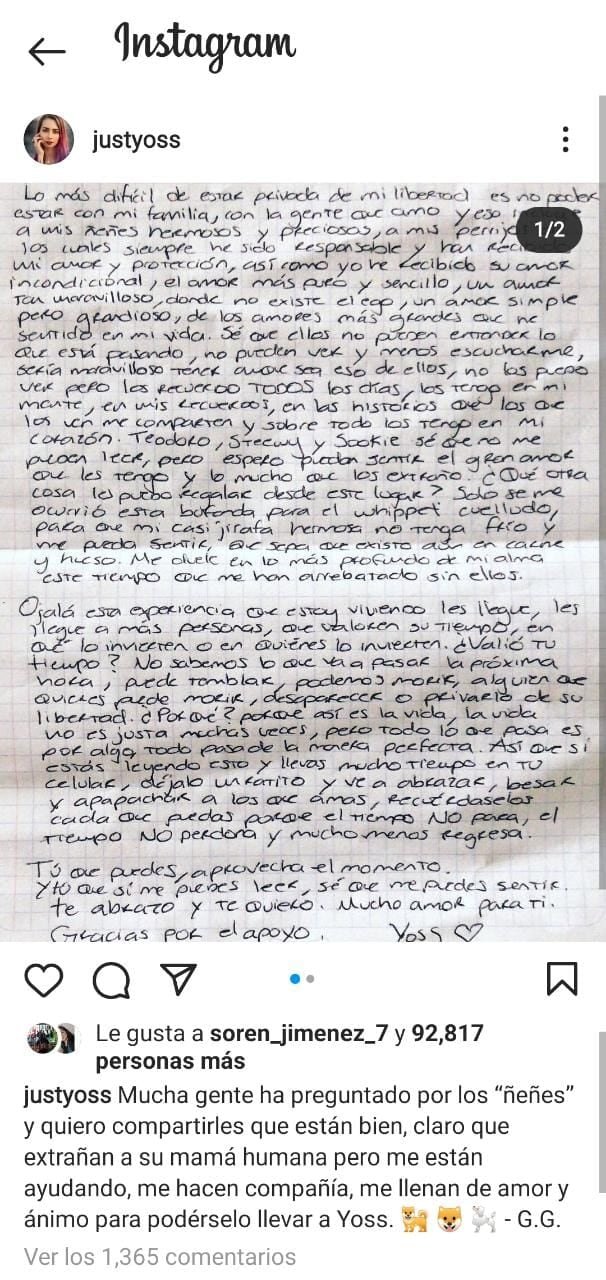 Instagram
justyoss
1/2
Lo más difícil de estar privada de mi libertad es no poder
estar con mi familia, con la gente que amo y eso
a mis ñeñes hermosos y preciosos, a mis
los cuales siempre he sido responsable y han
mi amor y protección, así como yo he recibido su amor
incondicional, el amor más puro y sencillo, un amor
tan maravilloso, donde no existe el ego, un amor simple
pero grandioso, de los amores más grandes que he
sentido en mi vida. Sé que ellos no pueden entender lo
que está pasando, no pueden ver y menos escucharme,
sería maravilloso tener aunque sea eso de ellos, no los puedo
ver pero los recuerdo TODOS los días, los tengo en mi
mente, en mis recuerdos, en las historias que los que
los ven me comparten y sobre todo los tengo en mi
corazón. Teodoro, Steewy y Sookie sé que no me
pueden leer, pero espero puedan sentir el gran amor
que les tengo y lo mucho que los extraño. ¿Qué otra
cosa les puedo regalar desde este lugar? Solo se me
ocurrió esta bufanda para el whippet cuelludo,
para que mi casi jirafa hermosa no tenga frío y
me pueda sentir, que sepa que existo aún en carne
y hueso. Me duele en lo más profundo de mi alma
este tiempo que me han arrebatado sin ellos.
Ojalá esta experiencia que estoy viviendo les llegue, les
llegue a más personas, que valoren su tiempo, en
qué lo invierten o en quiénes lo invierten. ¿Valió tu
tiempo? No sabemos lo que va a pasar la próxima
hora, puede temblar, podemos morir, alguien que
quieres puede morir, desaparecer o privarlo de su
libertad. ¿Por qué? porque así es la vida, la vida
no es justa muchas veces, pero todo lo que pasa es
por algo, todo pasa de la manera perfecta. Así que si
estás leyendo esto y llevas mucho tiempo en tu
celular, déjalo un ratito y ve a abrazar, besar
y apapachar a los que amas, recuérdaselos
cada que puedas porque el tiempo NO para, el
tiempo NO perdona y mucho menos regresa.
Tú que puedes, aprovecha el momento.
Y tú que sí me puedes leer, sé que me puedes sentir.
te abrazo y te quiero. Mucho amor para ti.
Gracias por el apoyo. Yoss ♡
Le gusta a soren_jimenez_7 y 92,817
personas más
justyoss Mucha gente ha preguntado por los “ñeñes”
y quiero compartirles que están bien, claro que
extrañan a su mamá humana pero me están
ayudando, me hacen compañía, me llenan de amor y
ánimo para podérselo llevar a Yoss. 🐕 🐶 🐩 - G.G.
Ver los 1,365 comentarios